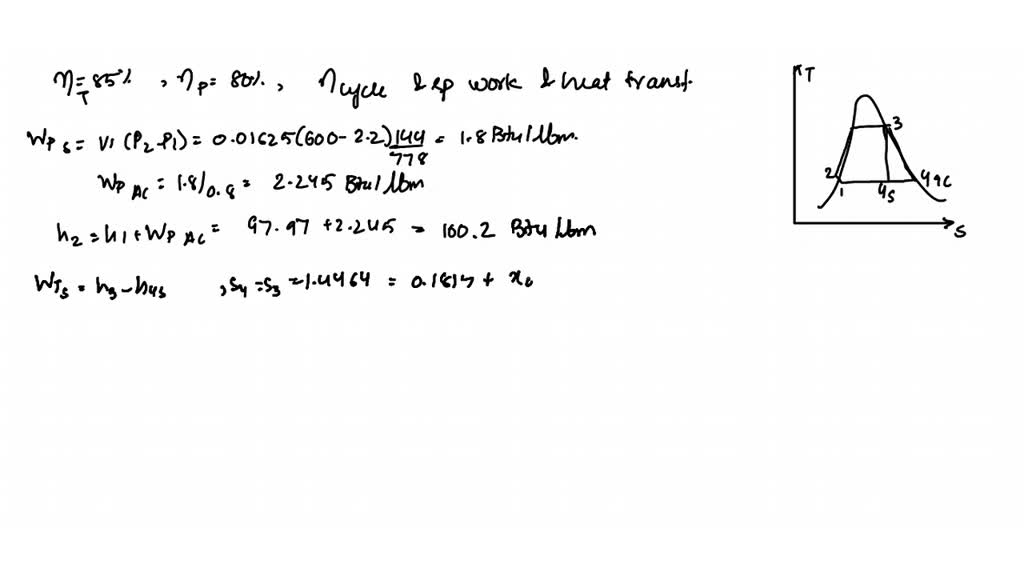 η_T = 85% , η_P = 80% , η cycle & sp work & heat transf.
W_P s = V1 (P2-P1) = 0.01625 (600 - 2.2) 144/778 = 1.8 Btu/lbm.
W_P AC = 1.8/0.8 = 2.245 Btu/lbm
h2 = h1 + W_P AC = 97.97 + 2.245 = 100.2 Btu/lbm
W_T s = h3 - h4s , s4 = s3 = 1.4464 = 0.1817 + x
T
3
2
1
4s
4ac
s